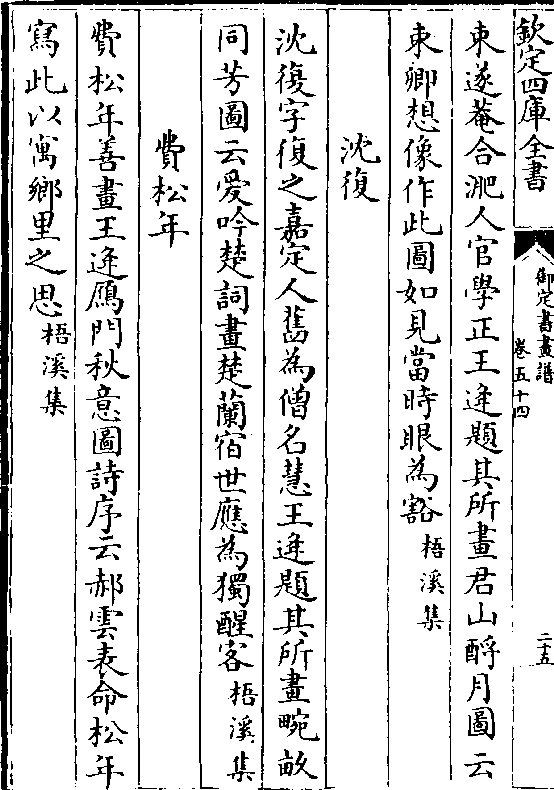 欽定四庫全書
御定書畫譜
卷五十四
二十五
東遂菴合淝人官學正王逢題其所畫君山酹月圖云
東卿想像作此圖如見當時眼為豁梧溪集
沈復
沈復字復之嘉定人舊為僧名慧王逢題其所畫畹畝
同芳圖云愛吟楚詞畫楚蘭宿世應為獨醒客梧溪集
費松年
費松年善畫王逢鴈門秋意圖詩序云郝雲表命松年
寫此以寓鄉里之思梧溪集